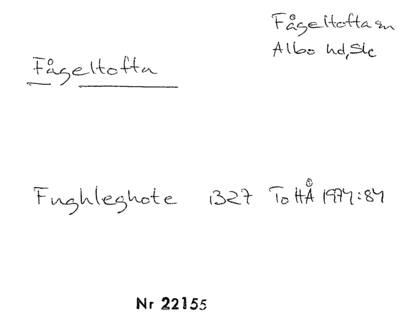 Fågeltofta sn
Albo hd, Sk
Fågeltofta
Fughleghote 1327 ToHÅ 1974:84
Nr 22155